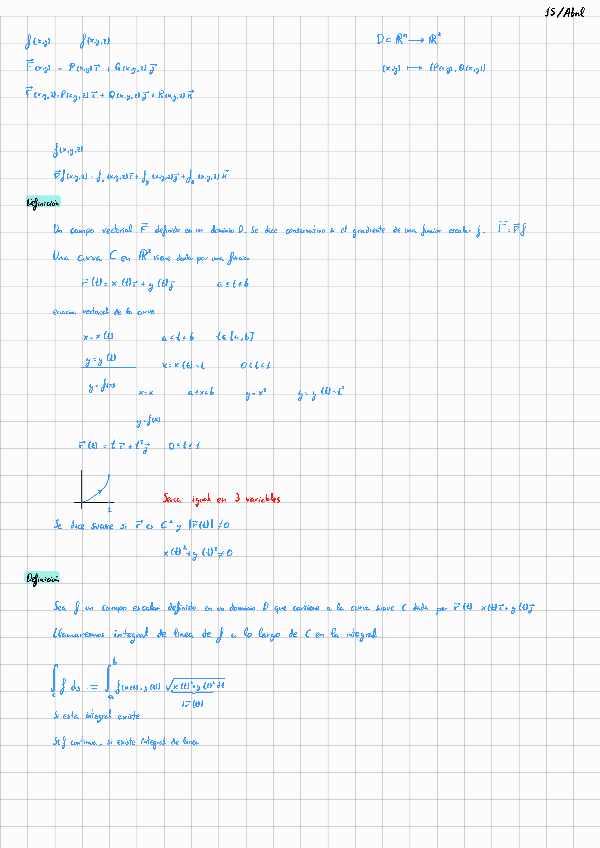 15/Abril
f(x,y) f(x,y,z) D ⊂ ℝⁿ ⟶ ℝ²
F⃗(x,y) = P(x,y) i⃗ + Q(x,y) j⃗ (x,y) ⟼ (P(x,y), Q(x,y))
F⃗(x,y,z) = P(x,y,z) i⃗ + Q(x,y,z) j⃗ + R(x,y,z) k⃗
f(x,y,z)
∇⃗f(x,y,z) = fₓ(x,y,z) i⃗ + f_y(x,y,z) j⃗ + f_z(x,y,z) k⃗
Definición
Un campo vectorial F⃗ definido en un dominio D. Se dice conservativo si el gradiente de una funcion escalar f. F⃗ = ∇⃗f
Una curva C en ℝ² viene dada por una funcion
r⃗(t) = x(t) i⃗ + y(t) j⃗ a ≤ t ≤ b
ecuacion vectorial de la curva
x = x(t) a ≤ t ≤ b t ∈ [a,b]
y = y(t) x = x(t) = t 0 ≤ t ≤ 1
y = f(x) x = x a ≤ x ≤ b y = x² y = y(t) = t²
y = f(x)
r⃗(t) = t i⃗ + t² j⃗ 0 ≤ t ≤ 1
1
Seria igual en 3 variables
Se dice suave si r⃗ es C¹ y |r⃗(t)| ≠ 0
x(t)² + y(t)² ≠ 0
Definición
Sea f un campo escalar definido en un dominio D que contiene a la curva suave C dada por r⃗(t) = x(t) i⃗ + y(t) j⃗
Llamaremos integral de linea de f a lo largo de C en la integral
∫_C f ds = ∫_a^b f(x(t), y(t)) √(x(t)² + y(t)² dt)
|r⃗(t)|
Si esta integral existe
Si f continua, si existe integral de linea